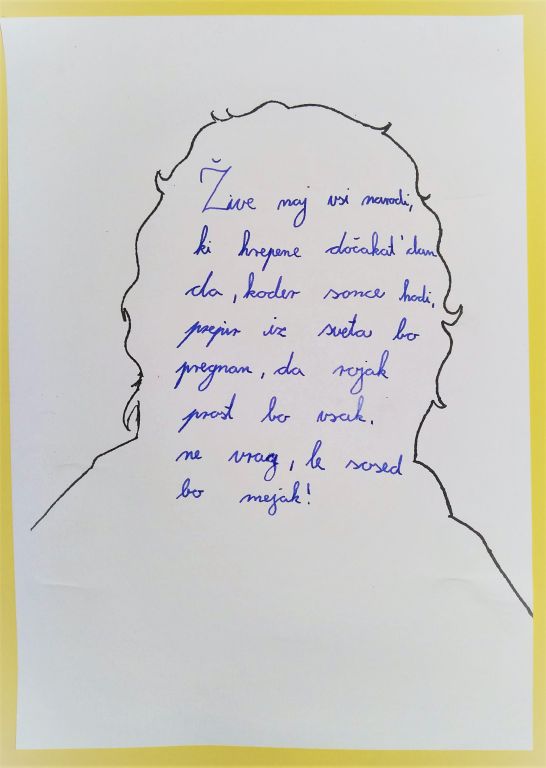 Žive naj vsi narodi,
ki hrepene dočakat' dan
da, koder sonce hodi,
prepir iz sveta bo
pregnan, da rojak
prost bo vsak.
ne vrag, le sosed
bo mejak!